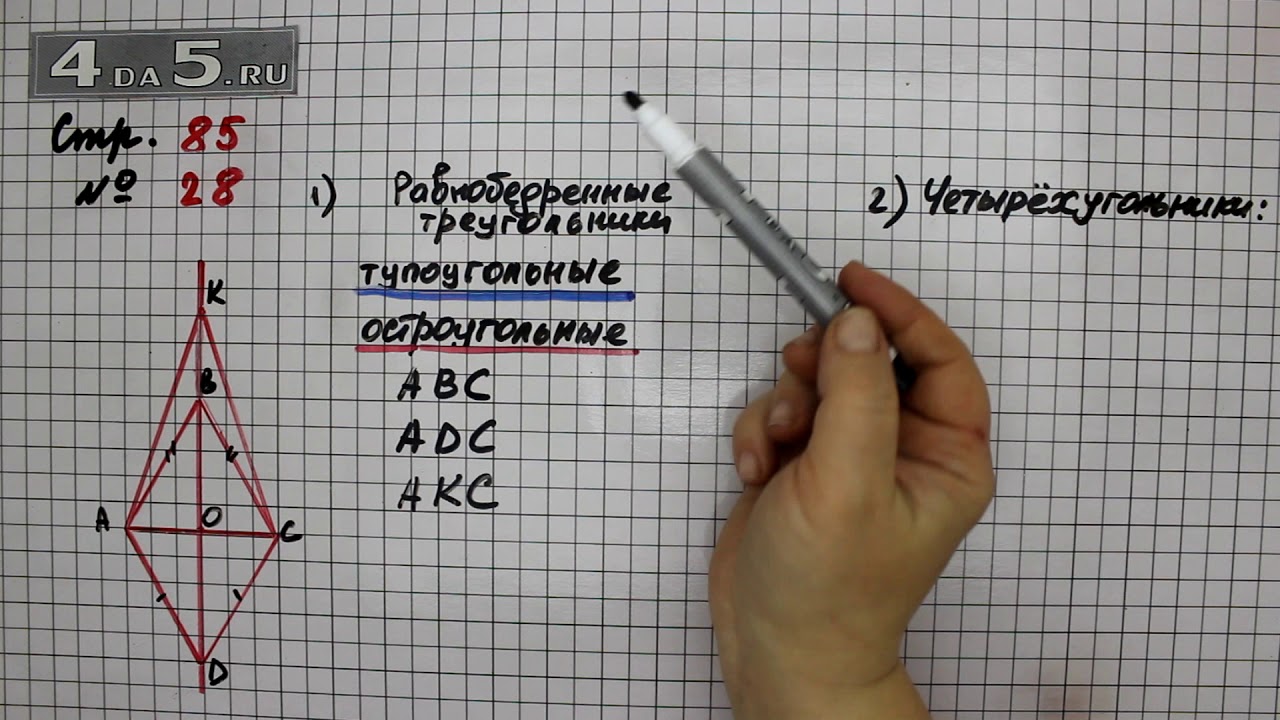 4DA5.RU
Стр. 85
№ 28
1) Равнобедренные
треугольники
тупоугольные
остроугольные
ABC
ADC
AKC
2) Четырёхугольники:
K
B
A
O
C
D